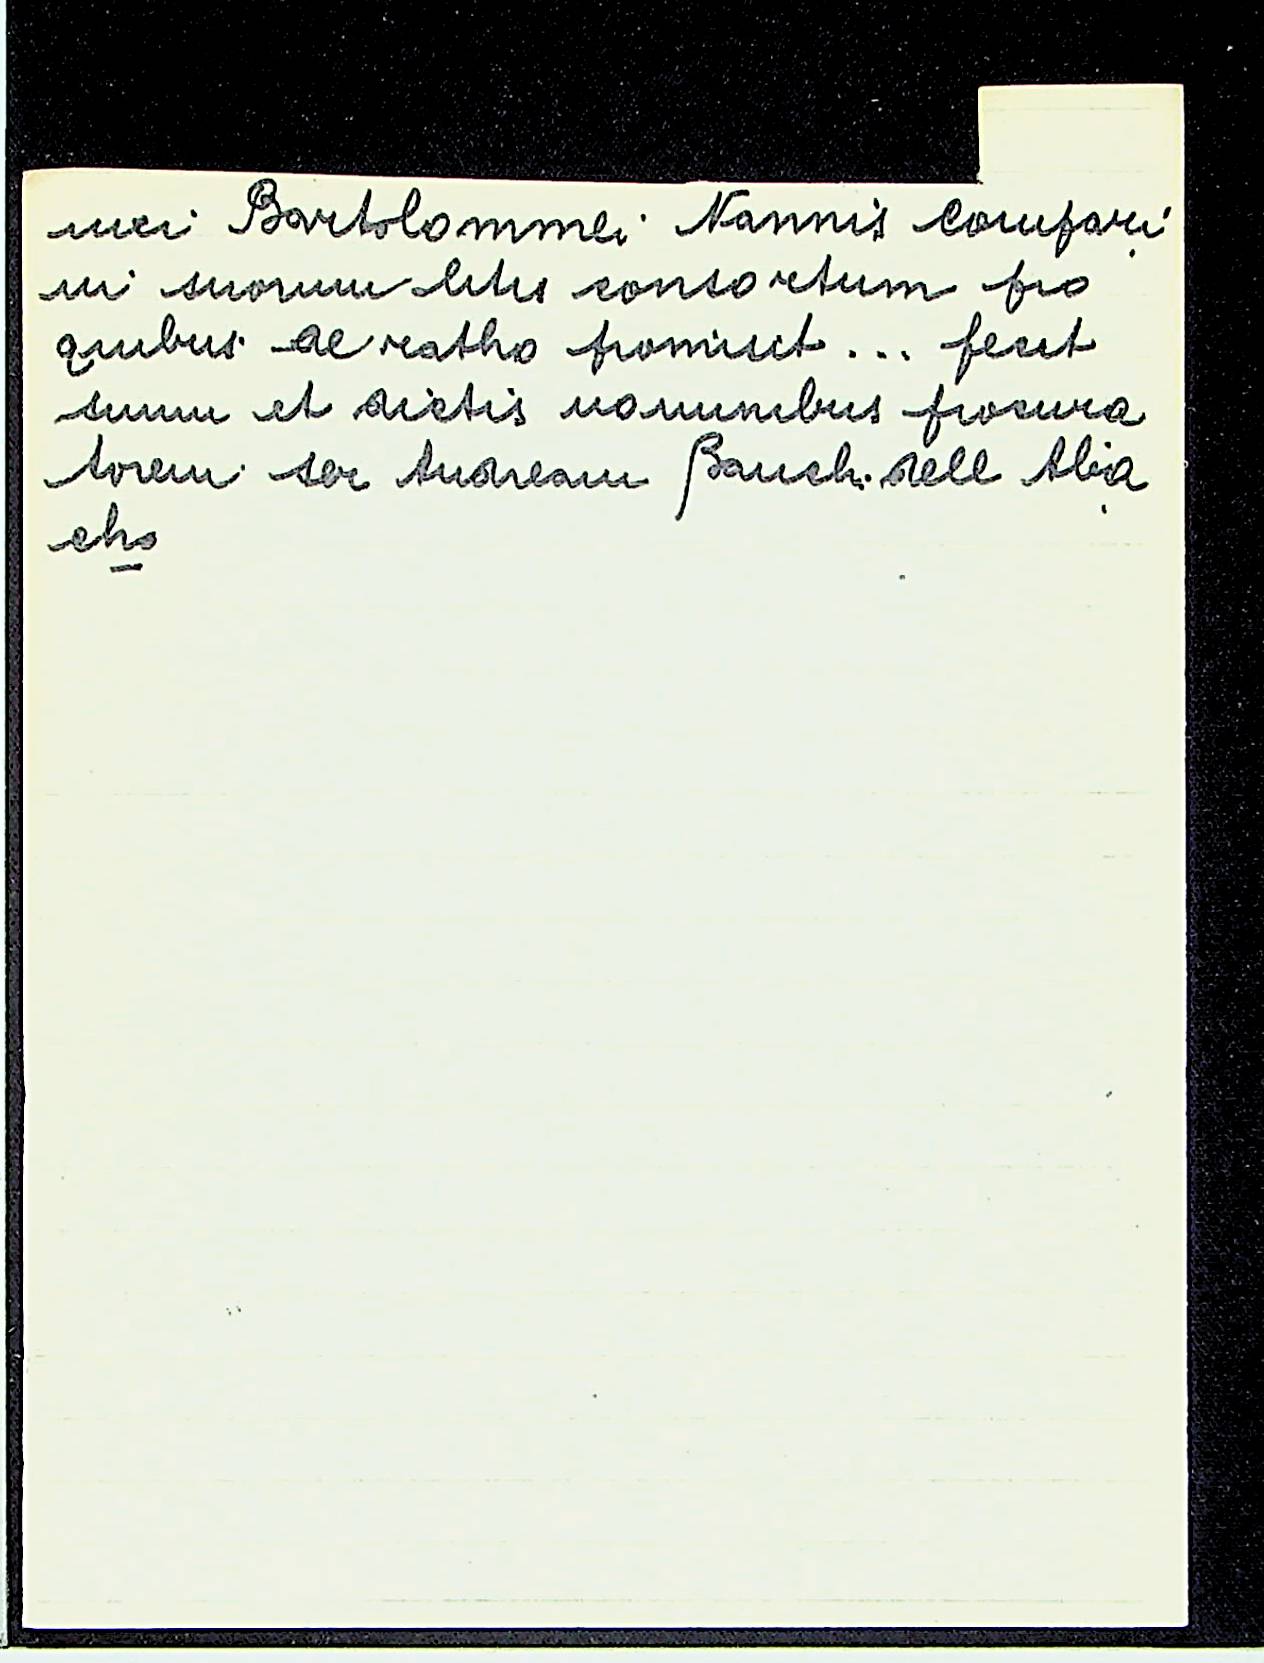 meri Bartolommei Nannis Compari
ni suorum litis consortum pro
quibus de ratho promisit ... fecit
suum et dictis nominibus procura
torem ser Andream Banch. dell Abia
cho